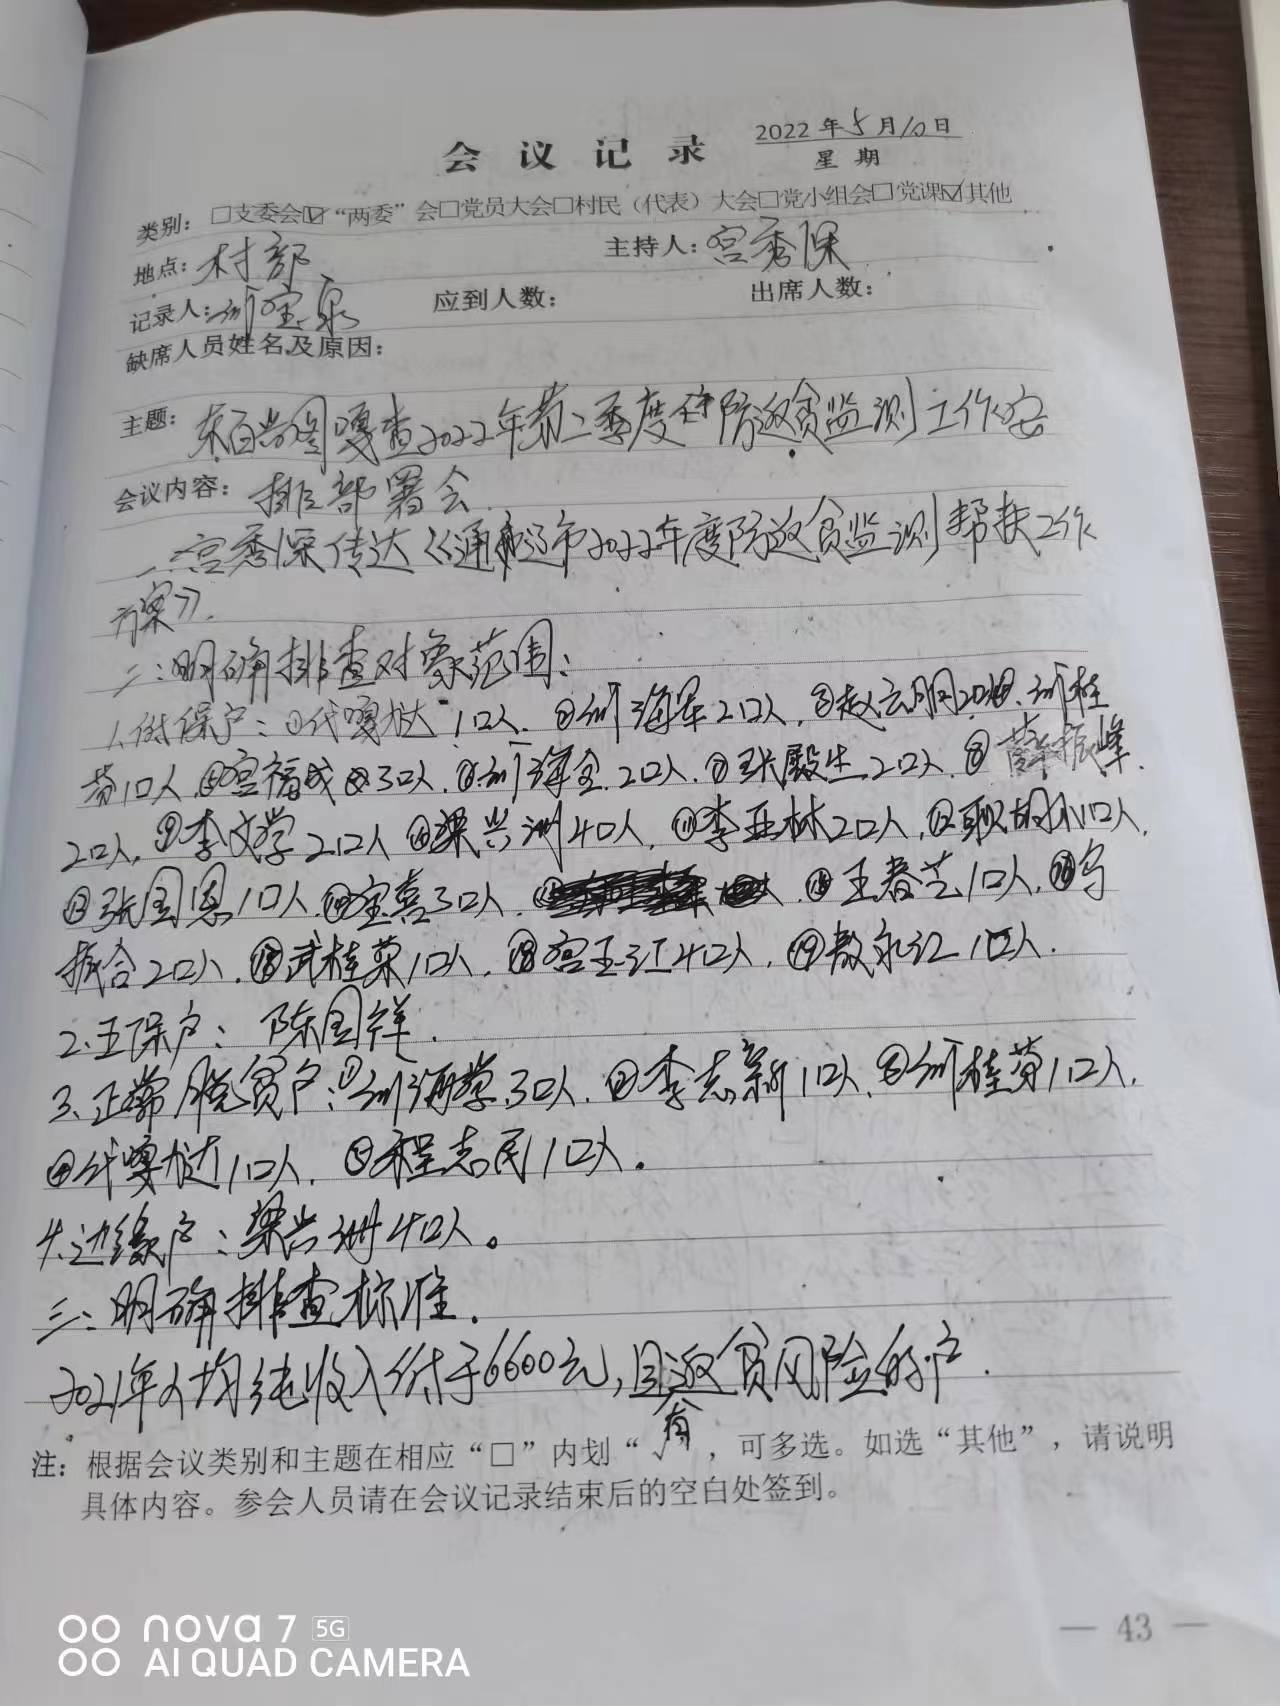 会议记录
2022年5月10日
星期
类别：□支委会☑“两委”会□党员大会□村民（代表）大会□党小组会□党课☑其他
地点：村部 主持人：宫秀保
记录人：宝泉 应到人数： 出席人数：
缺席人员姓名及原因：
主题：东百兴图嘎查2022年第二季度防返贫监测工作安
会议内容：排部署会.
一：宫秀保传达《通辽市2022年度防返贫监测帮扶工作
方案》.
二：明确排查对象范围：
1.低保户：①代嘎达1口人.②海军2口人.③赵云明2口人.桂
芬1口人.⑤宫福成3口人.⑥海全2口人.⑦张殿生2口人.⑧薛振峰
2口人.⑨李文学2口人⑩梁兴洲4口人.⑪李亚林2口人.⑫胡小1口人.
⑬张国恩1口人.⑭宝喜3口人.⑮王春芝1口人.⑯乌
振合2口人.武桂荣1口人.⑱宫玉江4口人.⑲敖永江1口人.
2.五保户：陈国祥.
3.正常脱贫户：①海学3口人.②李志新1口人.③桂芬1口人.
④代嘎达1口人.⑤程志民1口人。
4.边缘户：梁兴洲4口人。
三：明确排查标准.
2021年人均纯收入低于6600元，且有返贫风险的户.
注：根据会议类别和主题在相应“□”内划“√”，可多选。如选“其他”，请说明
具体内容。参会人员请在会议记录结束后的空白处签到。
— 43 —
nova 7 5G
AI QUAD CAMERA